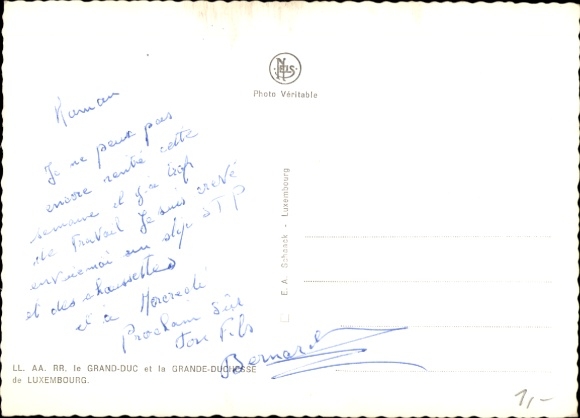 Maman
Je ne peux pas
encore rentré cette
semaine il y a trop
de Travail Je suis crevé
envoiemoi un slip STP
et des chaussettes
et à Mercredi
Prochain
Ton Fils
Bernard
NELS
Photo Véritable
E. A. Schaack - Luxembourg
LL. AA. RR. le GRAND-DUC et la GRANDE-DUCHESSE
de LUXEMBOURG.
1,-